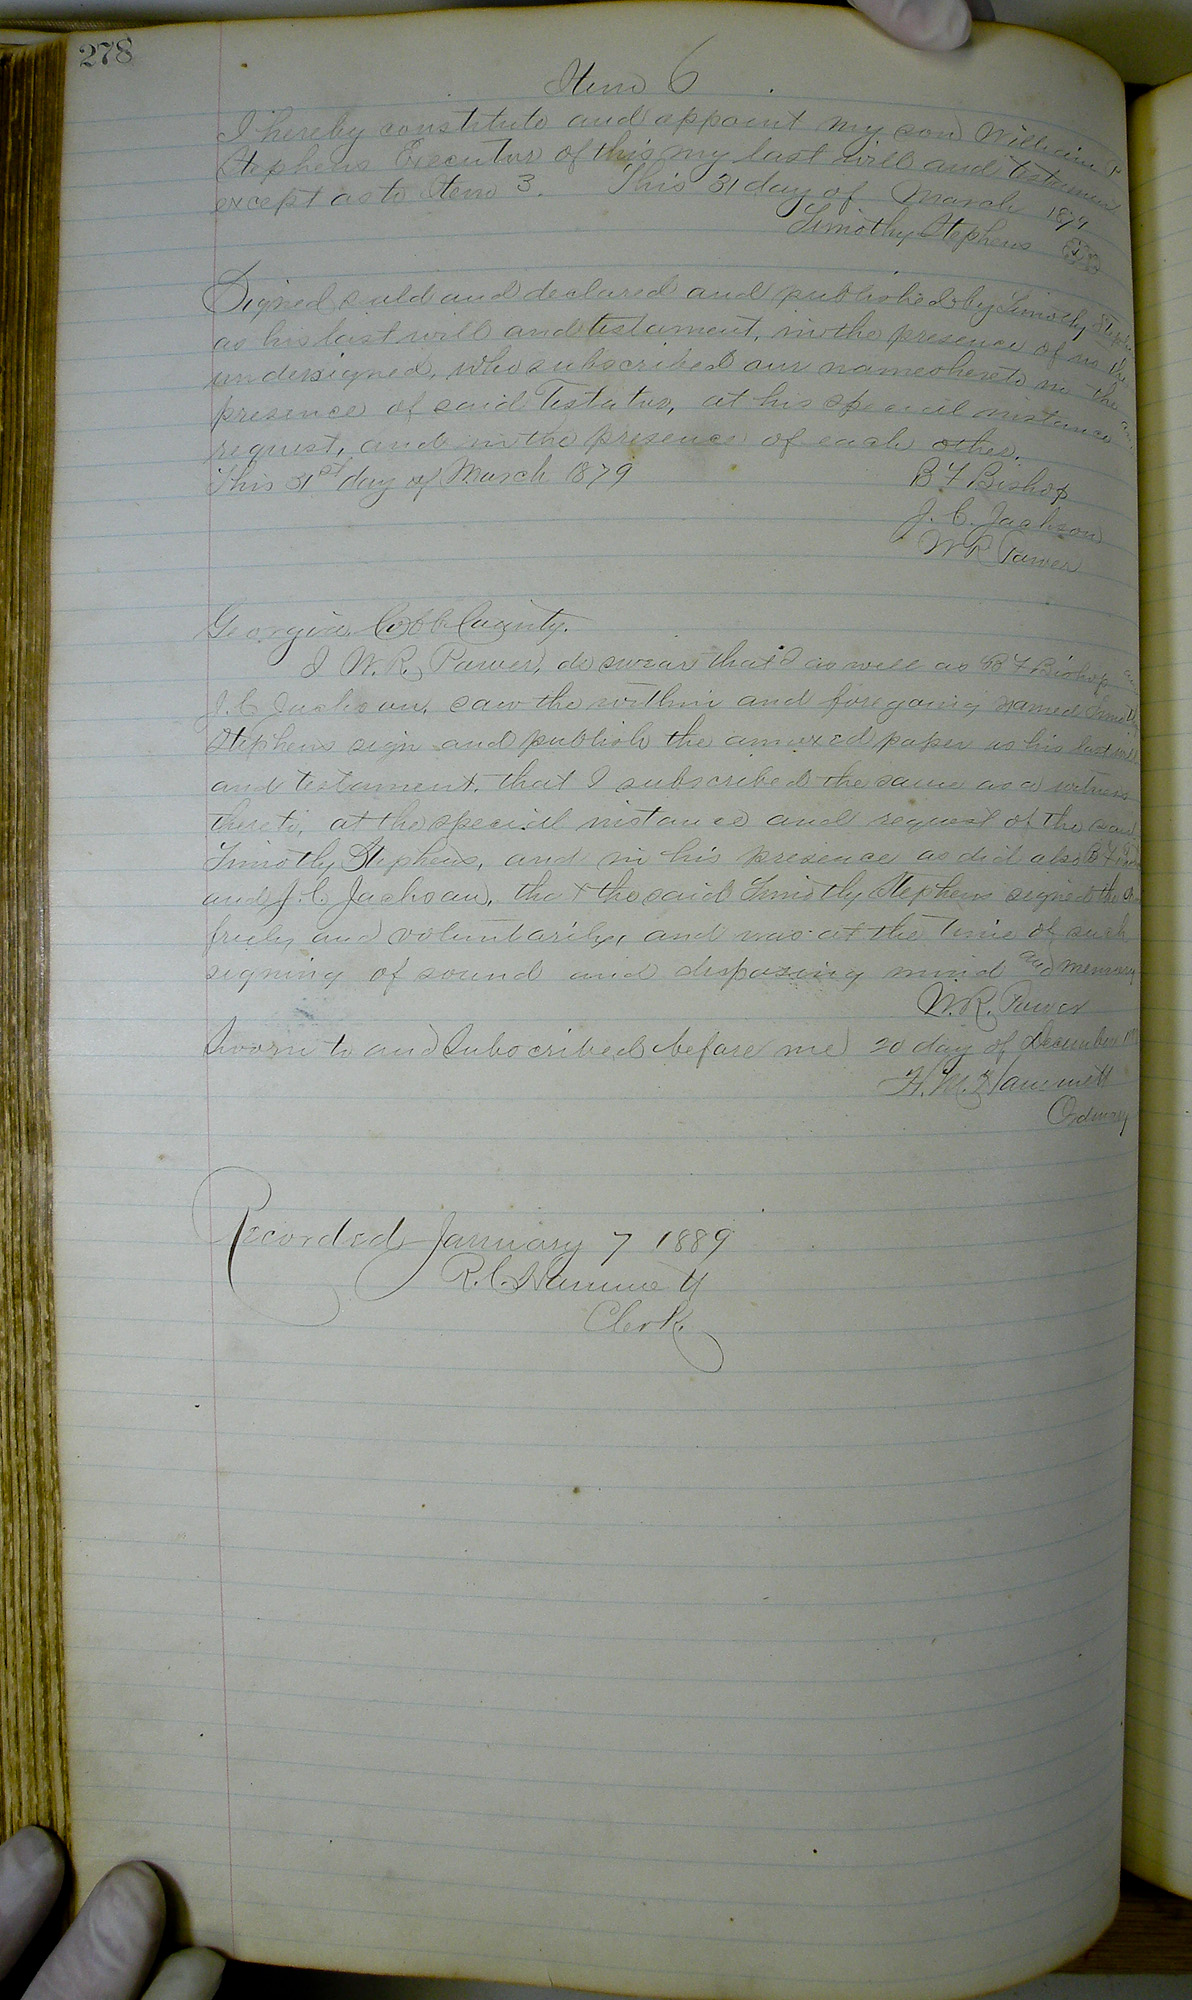 278
Item 6
I hereby constitute and appoint my son William P
Stephens Executor of this my last will and testament
except as to Item 3. This 31 day of March 1879
Timothy Stephens
Signed seald and declared and published by Timothy Steph
as his last will and testament, in the presence of us the
undersigned, who subscribed our names hereto in the
presence of said Testator, at his special instance
request, and in the presence of each other.
This 31st day of March 1879 B F Bishop
J. C. Jackson
W R Power
Georgia, Cobb County.
I W. R. Power, do swear that I as well as B F Bishop
J. C. Jackson, saw the within and foregoing named Timothy
Stephens sign and publish the annexed paper as his last will
and testament. that I subscribed the same as a witness
thereto, at the special instance and request of the said
Timothy Stephens, and in his presence as did also B F
and J. C. Jackson, that the said Timothy Stephens signed the
freely and voluntarily, and was at the time of such
signing of sound and disposing mind and memory
W. R. Power
Sworn to and Subscribed before me 20 day of December
H. M. Hammett
Ordinary
Recorded January 7 1889
R. C. Hammett
Clerk.